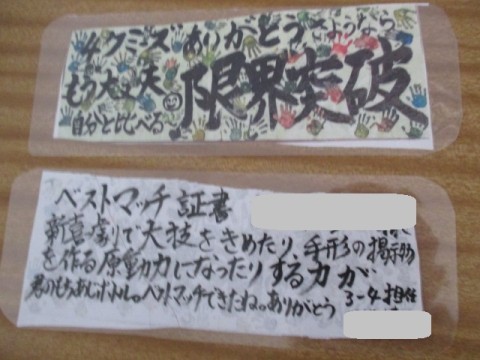 4クミズ ありがとう さようなら
もう大丈夫
自分と比べる
限界突破
ベストマッチ証書
新喜劇で大技をきめたり、手形の掲示物
を作る原動力になったりする力が
君のもちあじボトル。ベストマッチできたね。ありがとう 3-4 担任